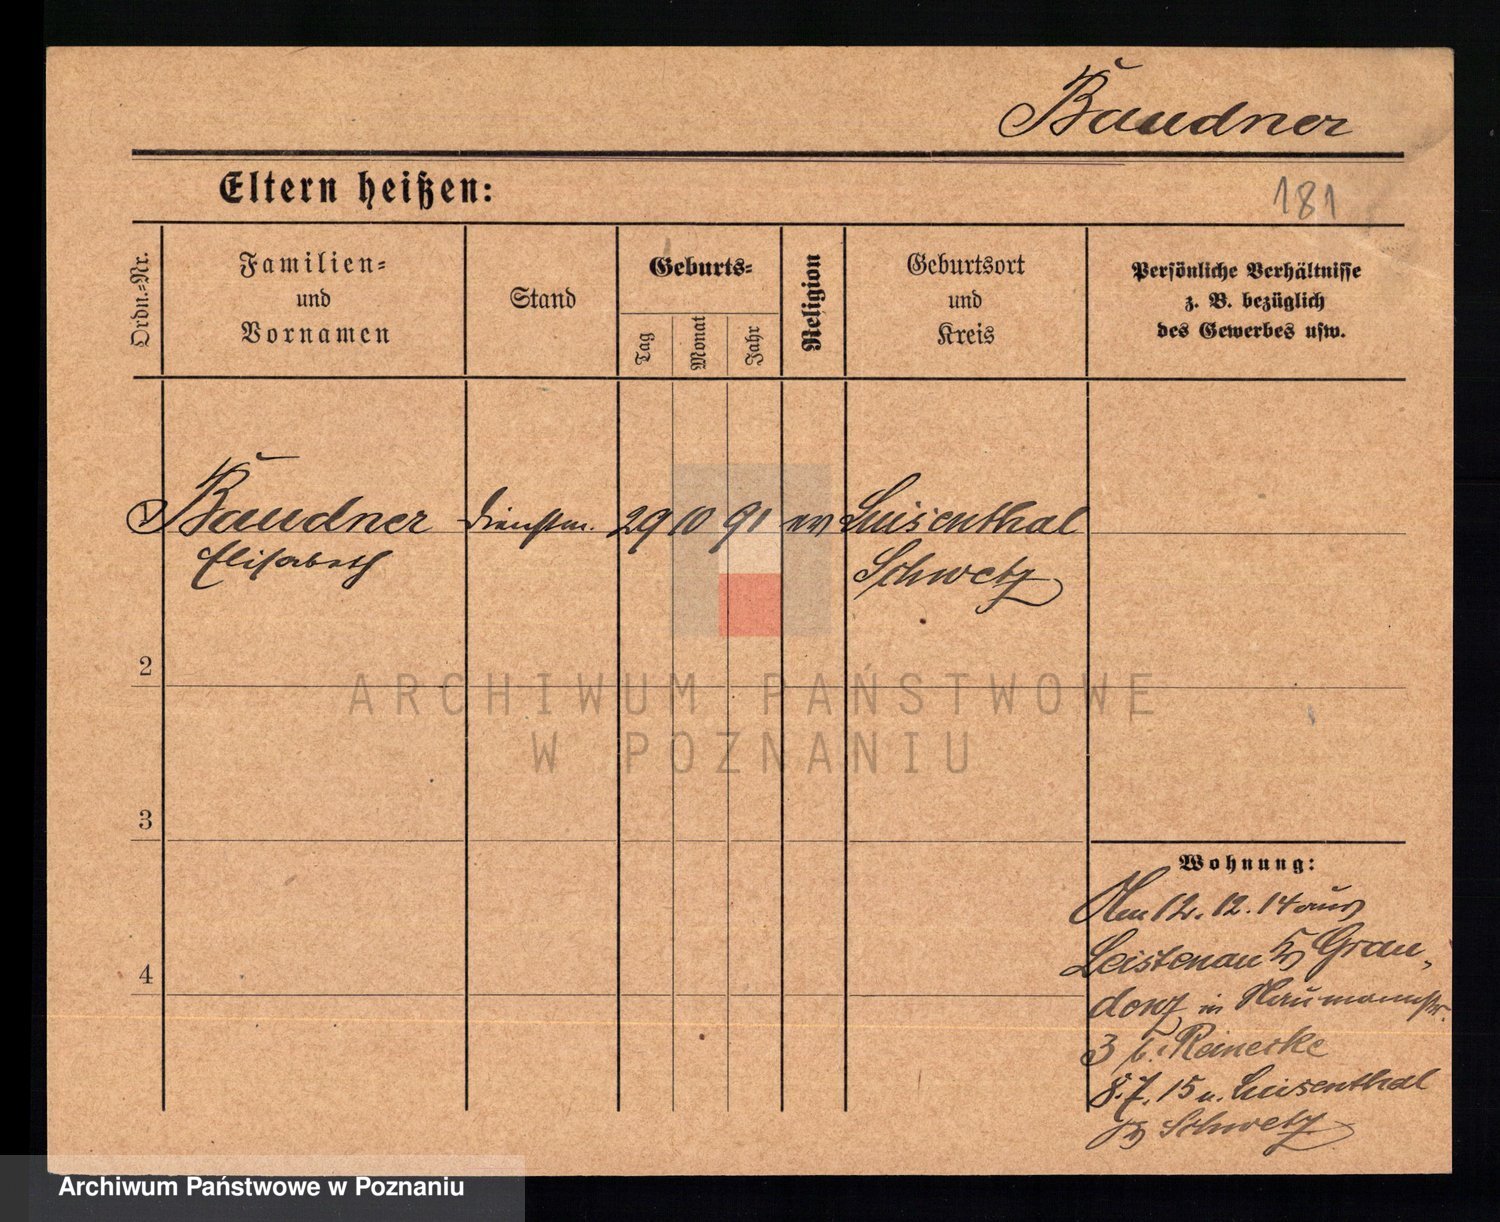 Baudner
Eltern heißen:
181
Ordn.=Nr.
Familien=
und
Vornamen
Stand
Geburts=
Tag
Monat
Jahr
Religion
Geburtsort
und
Kreis
Persönliche Verhältnisse
z. B. bezüglich
des Gewerbes usw.
Baudner Dienstm. 29 10 91 ev Luisenthal
Elisabeth Schwetz
2
3
4
Wohnung:
Am 12. 12. 14 aus
Leistenau Graudenz in Naumannstr.
3 b. Reinecke
8. 7. 15 n. Luisenthal
Schwetz
ARCHIWUM PAŃSTWOWE
W POZNANIU
Archiwum Państwowe w Poznaniu